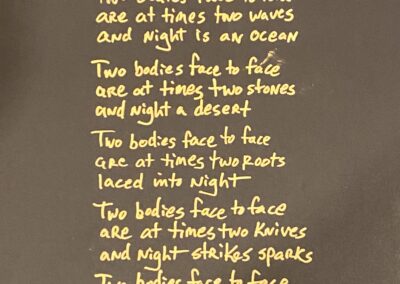 Two bodies face to face
are at times two waves
and Night is an ocean
Two bodies face to face
are at times two stones
and Night a desert
Two bodies face to face
are at times two roots
laced into Night
Two bodies face to face
are at times two knives
and Night strikes sparks
Two bodies face to face